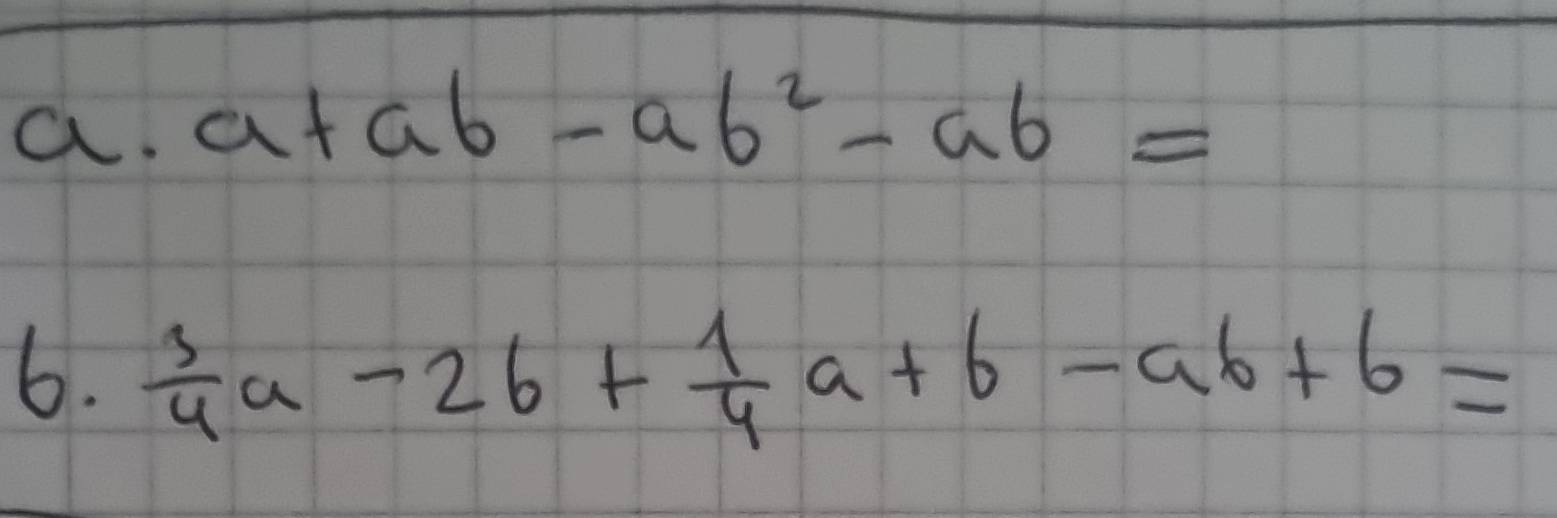 a. a + ab - ab² - ab =
b. 3/4 a - 2b + 1/4 a + b - ab + b =